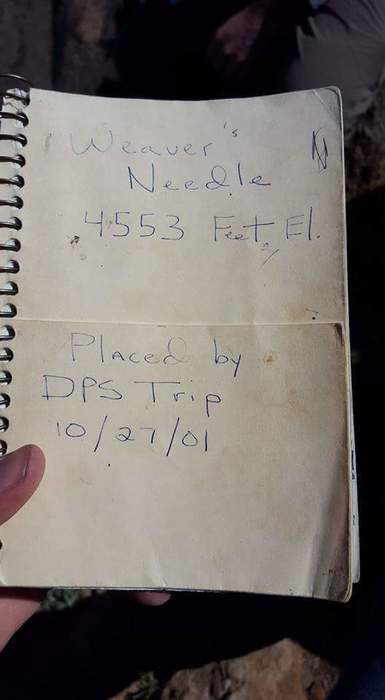 Weaver's
Needle
4553 Feet, El.
Placed by
DPS Trip
10/27/01